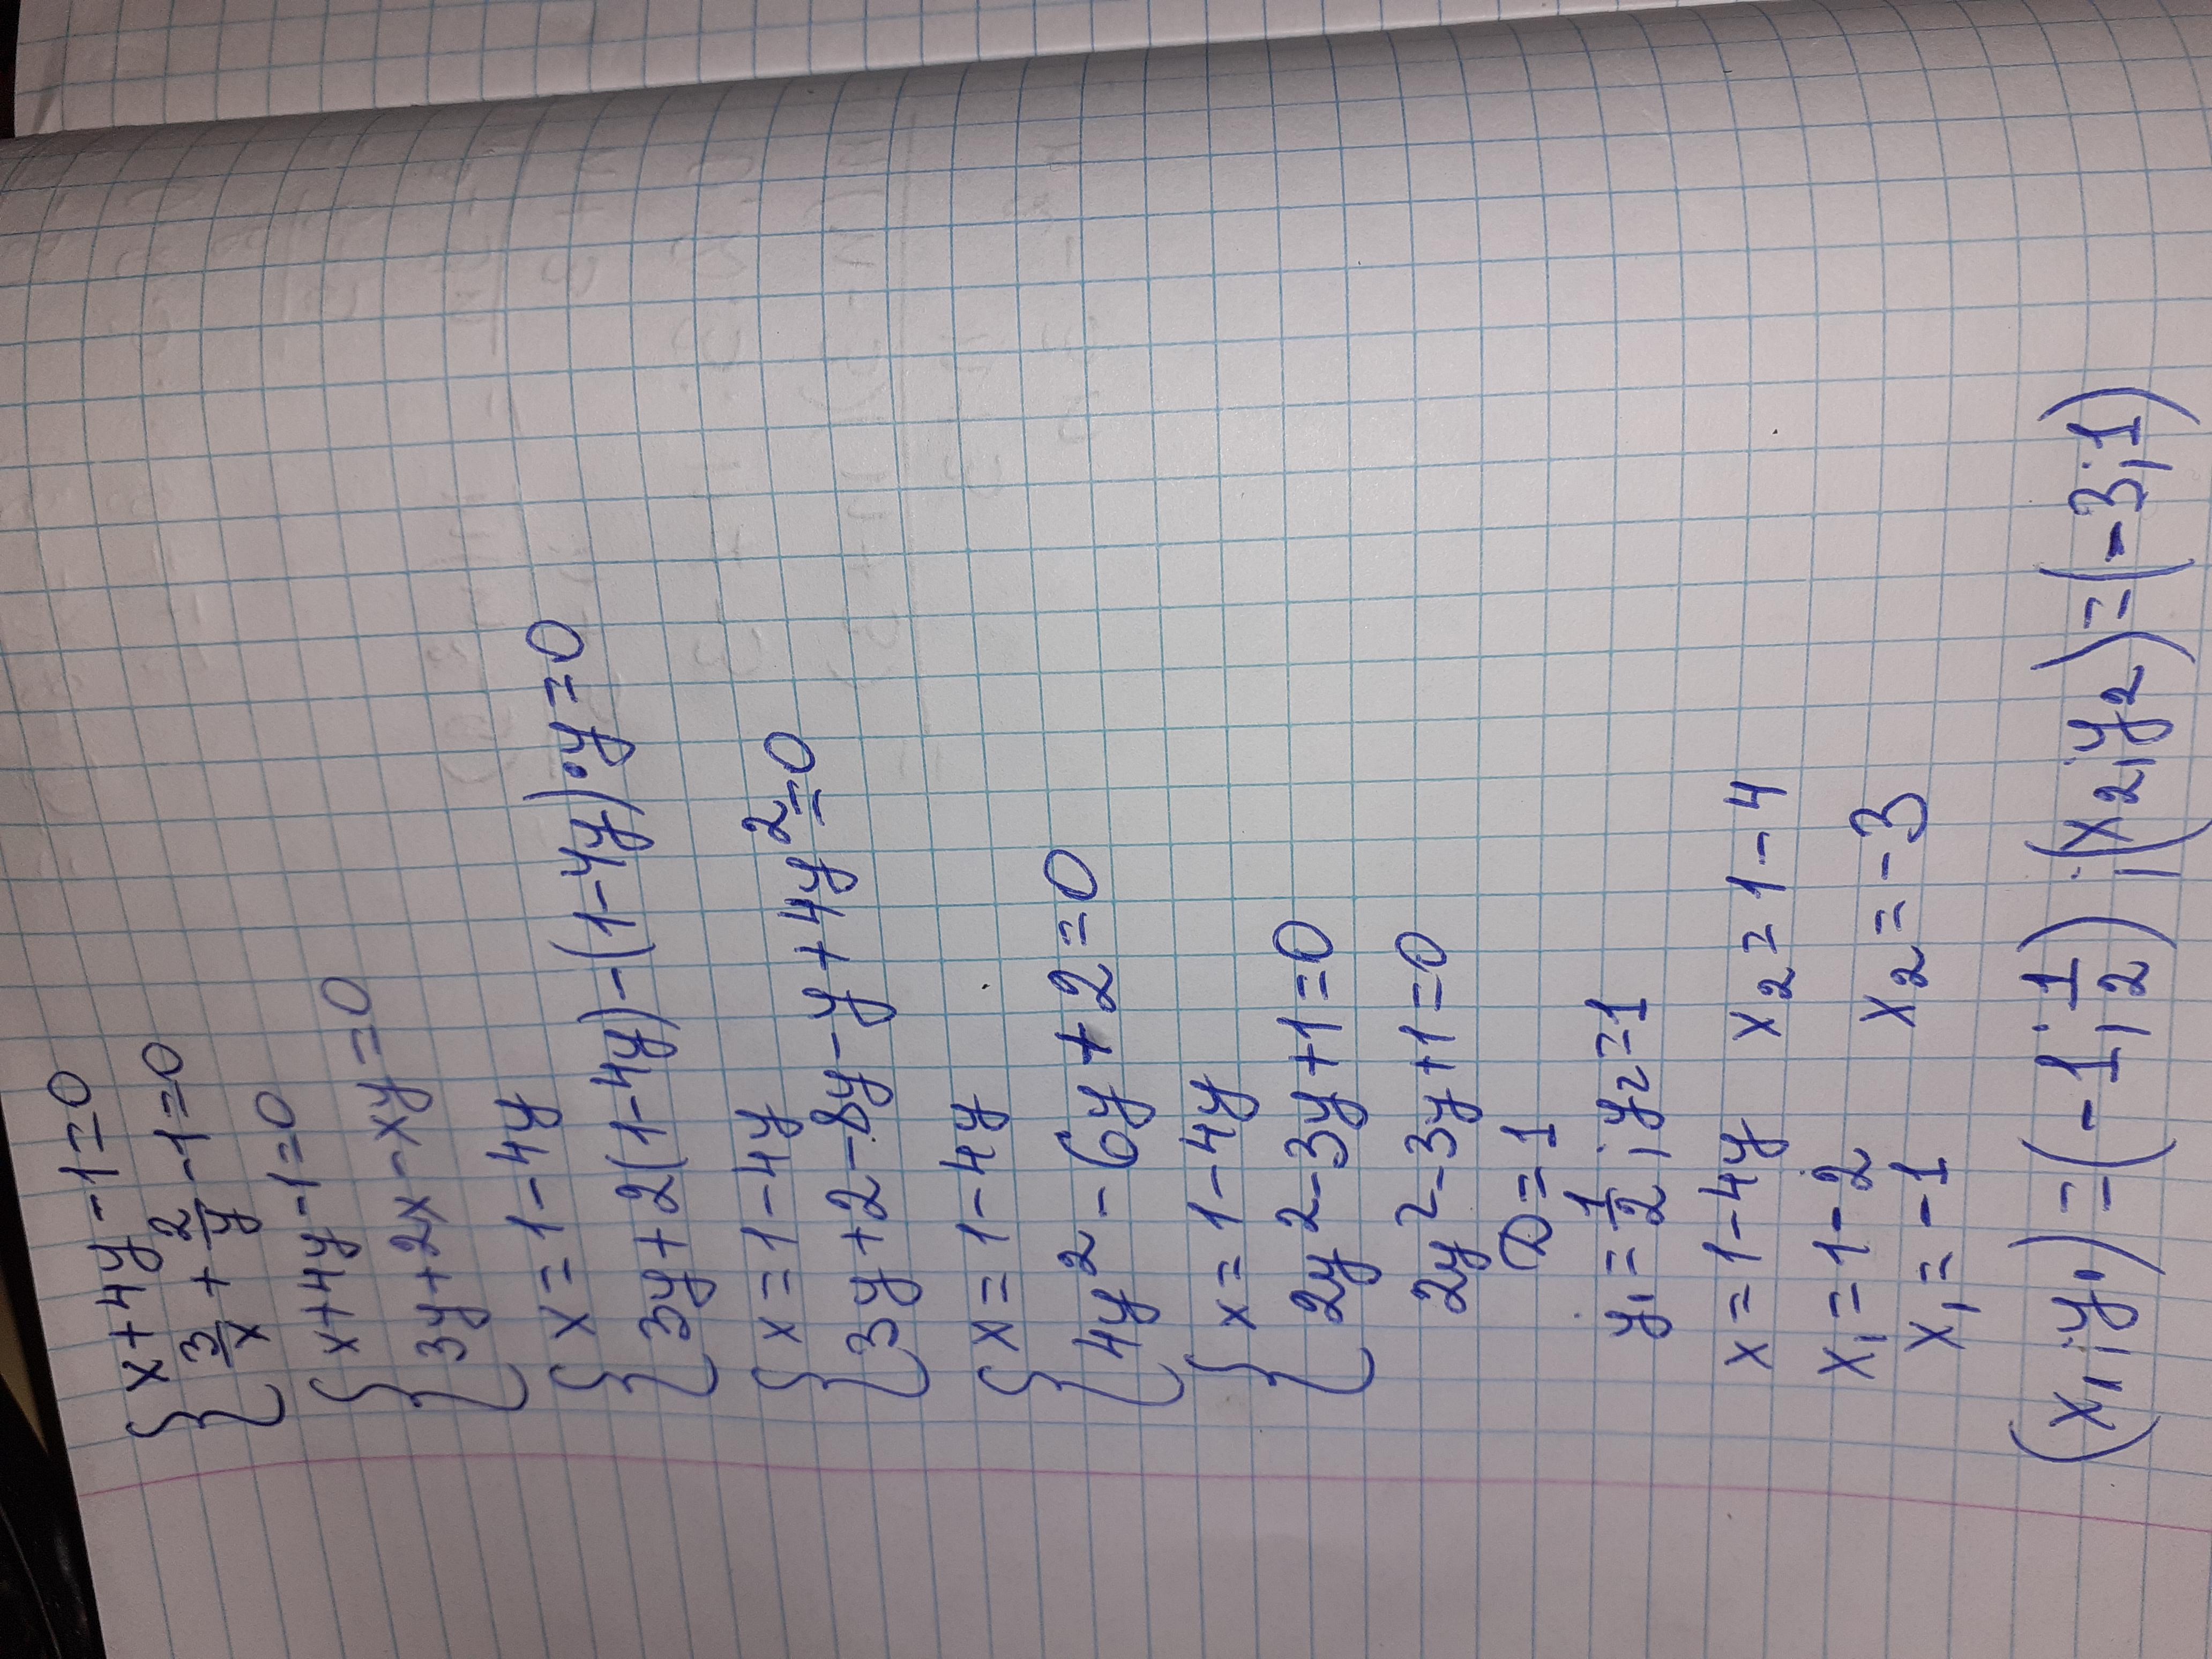 {x+4y-1=0
3/x+2/y-1=0
{x+4y-1=0
3y+2x-xy=0
{x=1-4y
3y+2(1-4y)-(1-4y)·y=0
{x=1-4y
3y+2-8y-y+4y²=0
{x=1-4y
4y²-6y+2=0
{x=1-4y
2y²-3y+1=0
2y²-3y+1=0
D=1
y₁=1/2; y₂=1
x=1-4y x₂=1-4
x₁=1-2 x₂=-3
x₁=-1
(x₁;y₁)=(-1;1/2);(x₂;y₂)=(-3;1)